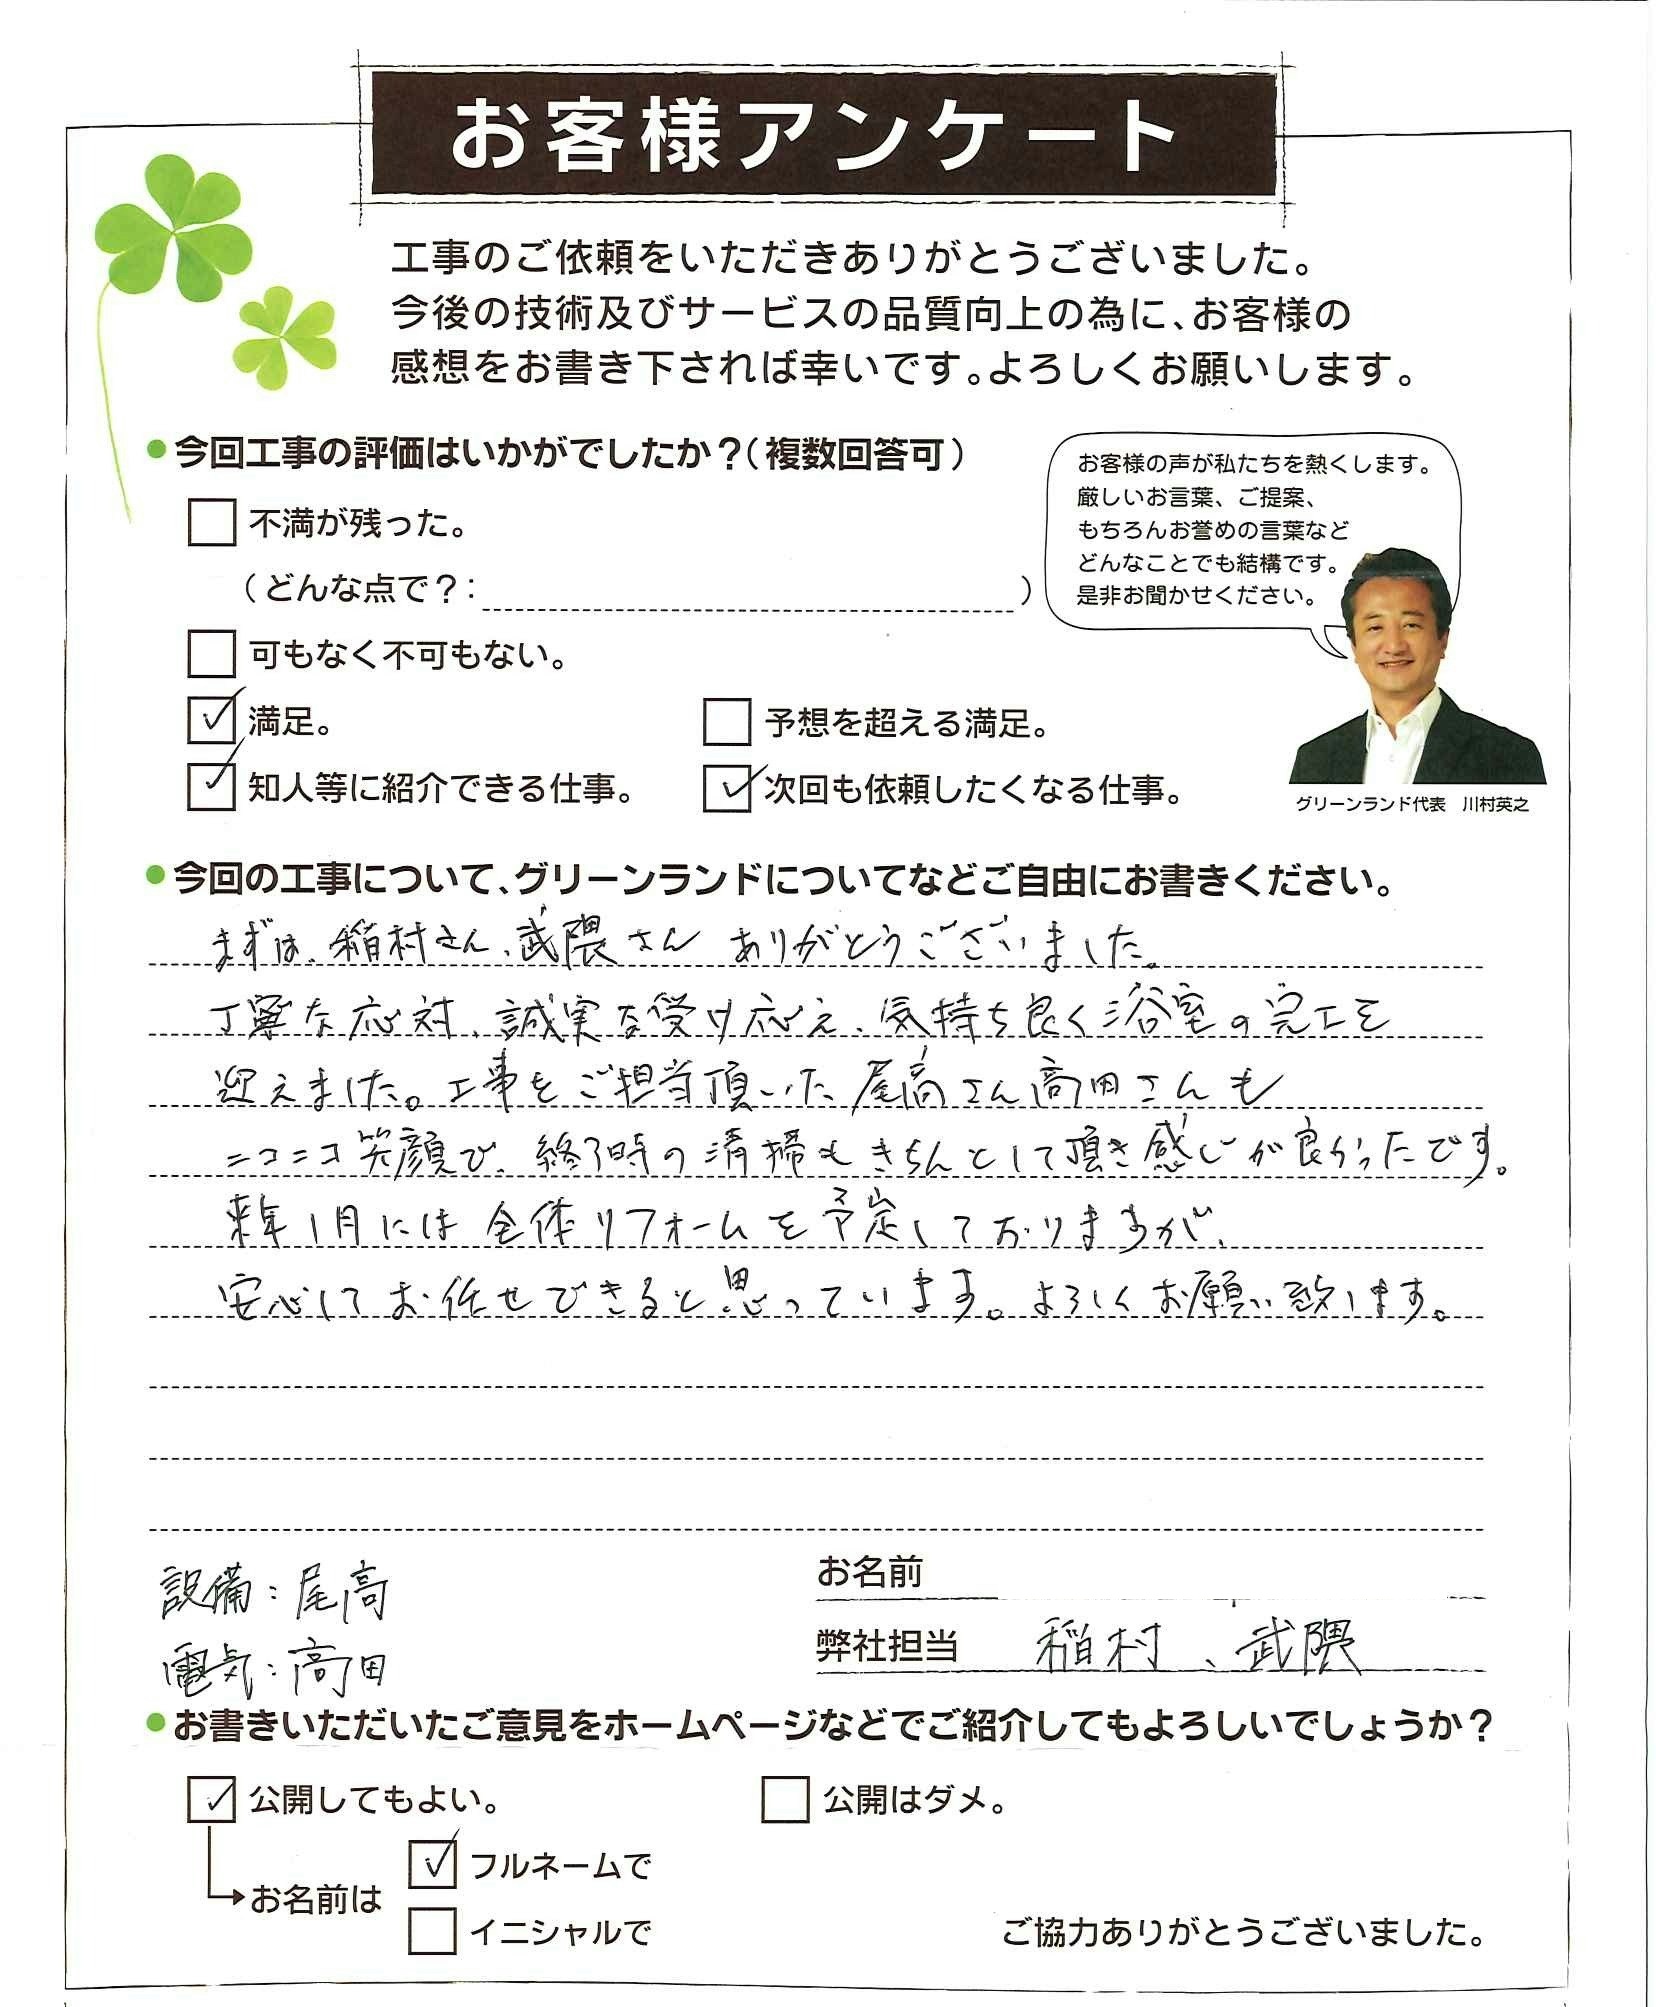 お客様アンケート
工事のご依頼をいただきありがとうございました。
今後の技術及びサービスの品質向上の為に、お客様の
感想をお書き下されば幸いです。よろしくお願いします。
●今回工事の評価はいかがでしたか？（複数回答可）
お客様の声が私たちを熱くします。
厳しいお言葉、ご提案、
もちろんお誉めの言葉など
どんなことでも結構です。
是非お聞かせください。
不満が残った。
（どんな点で？：　）
可もなく不可もない。
満足。
予想を超える満足。
知人等に紹介できる仕事。
次回も依頼したくなる仕事。
グリーンランド代表　川村英之
●今回の工事について、グリーンランドについてなどご自由にお書きください。
まずは、稲村さん、武隈さん ありがとうございました。
丁寧な応対、誠実な受け応え、気持ち良く浴室の完工を
迎えました。工事をご担当頂いた尾高さん高田さんも
ニコニコ笑顔で、終了時の清掃もきちんとして頂き感じが良かったです。
来年1月には全体リフォームを予定しておりますが、
安心してお任せできると思っています。よろしくお願い致します。
設備：尾高
電気：高田
お名前
弊社担当　稲村、武隈
●お書きいただいたご意見をホームページなどでご紹介してもよろしいでしょうか？
公開してもよい。
公開はダメ。
お名前は
フルネームで
イニシャルで
ご協力ありがとうございました。